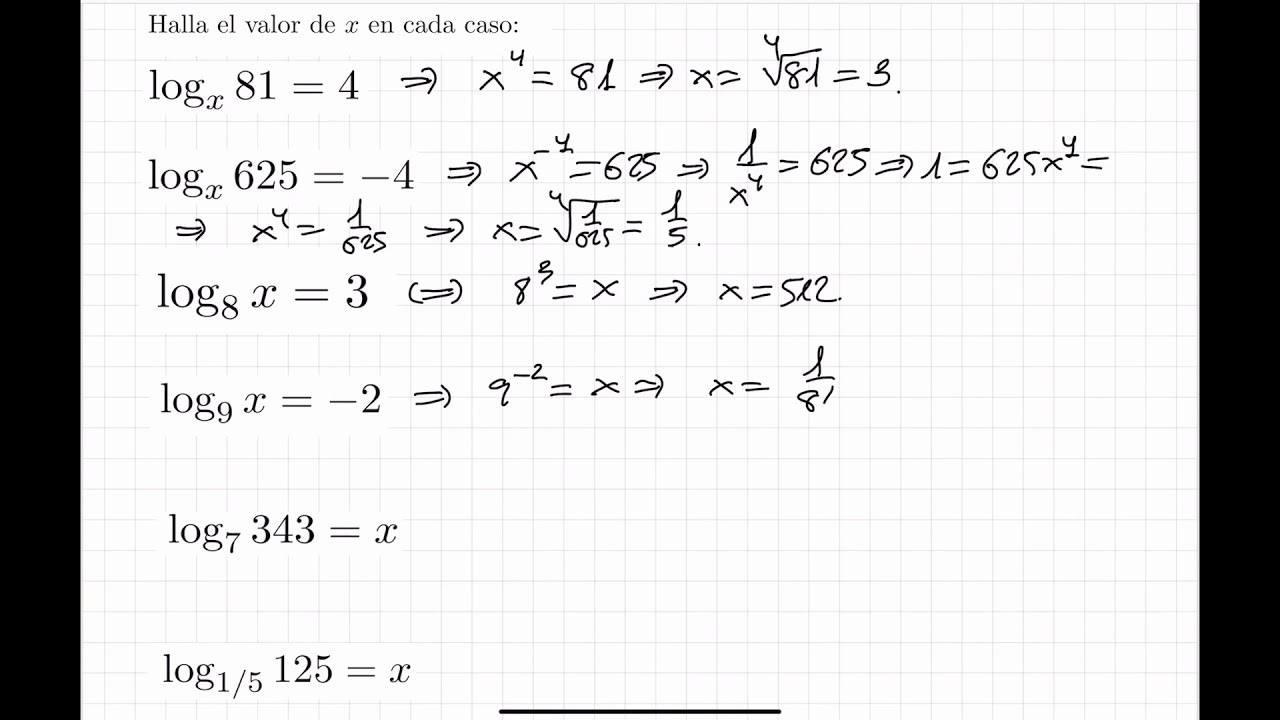 Halla el valor de x en cada caso:
logₓ 81 = 4 ⇒ x⁴ = 81 ⇒ x = ∜81 = 3.
logₓ 625 = −4 ⇒ x⁻⁴ = 625 ⇒ 1/x⁴ = 625 ⇒ 1 = 625x⁴ =
⇒ x⁴ = 1/625 ⇒ x = ∜(1/625) = 1/5.
log₈ x = 3 ⇔ 8³ = x ⇒ x = 512.
log₉ x = −2 ⇒ 9⁻² = x ⇒ x = 1/81
log₇ 343 = x
log₁/₅ 125 = x